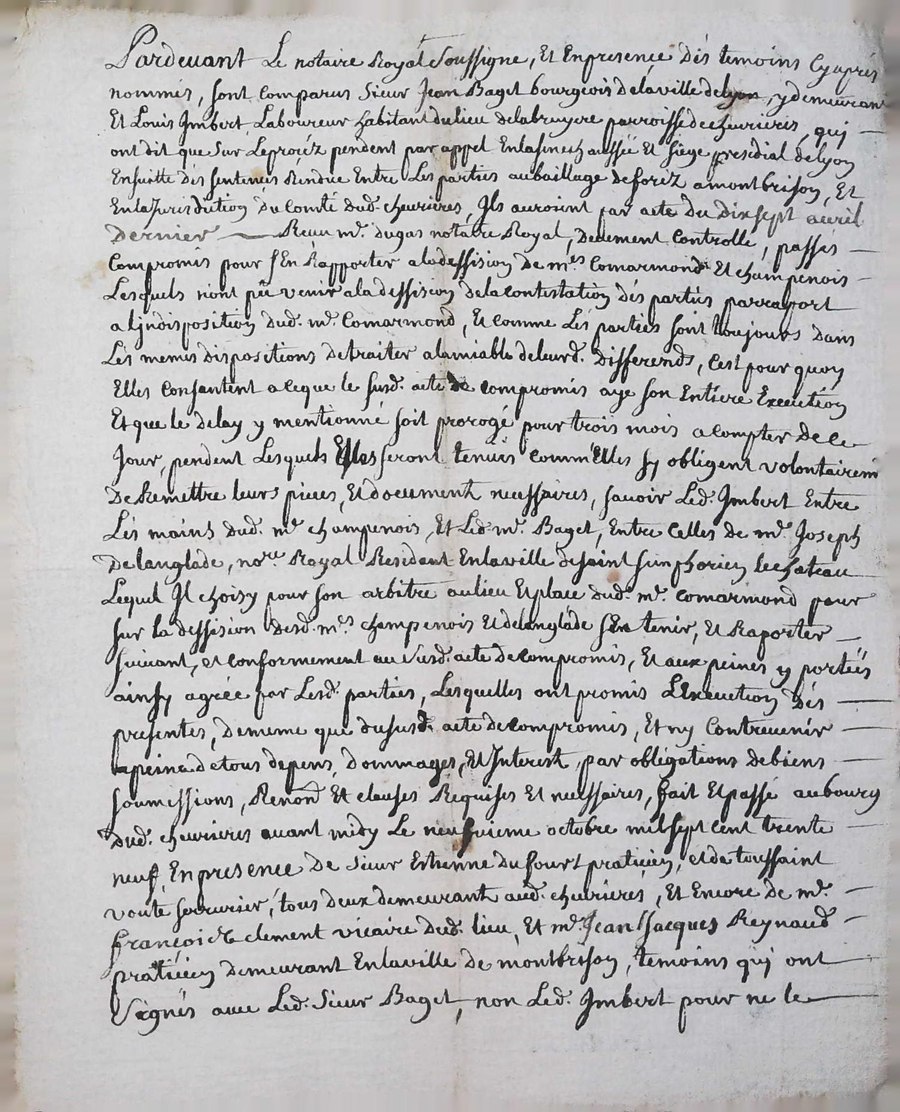 Pardevant Le notaire Royal Soussigne, Et Enpresence Dés temoins Cyaprés
nommés, sont Comparus Sieur Jean Baget bourgeois delaville delyon, y demeurant
Et Louis Imbert, Laboureur habitant dulieu delabruyere parroisse de cheurieres, qui
ont dit que Sur Leprocéz pendent par appel Enlasenechaussée Et siége presidial delyon
Ensuitte dés sentences Rendue Entre Les parties aubaillage deforéz amontbrison, Et
EnlaJurisdiction Du Comté dud. cheurieres, Ils auroient par acte du dixsept auril
Dernier Receu mr. dugas notaire Royal, Deuement Controllé, passés
Compromis pour s'En Rapporter aladession de mes. Comarmond Et champenois
Lesquels n'ont pû venir aladession delacontestation dés parties parraport
a Ljndisposition dud. mr. Comarmond, Et comme Lés parties sont toujours dans
Lés memes dispositions detraiter alamiable deleurd. Differends, C'est pour quoy
Elles Consantent a ceque le susd. acte de compromis aye son Entiere Execution
Et que le delay y mentionné soit prorogé pour trois mois a compter de ce
Jour, pendent Lesquels Elles seront tenues comm'Elles sy obligent volontairemt
De Remettre leurs pieces, Et document necessaires, sauoir Led. Imbert Entre
Lés mains dud. mr. champenois, Et Led. mr. Baget, Entre Celles de mr. Joseph
Delanglade, nore. Royal Resident Enlaville desaint simphorien lechateau
Lequel Il choisy pour son arbitre aulieu Et place dud. mr. Comarmond pour
sur la dession desd. mrs. champenois Et delanglade s'En tenir, Et Raporter
suiuant, et conformement au susd. acte de compromis, Et aux peines y portéés
ainsy agrée par Lesd. parties, Lesquelles ont promis L'Execution Dés
presentes, demême que dususd. acte de compromis, Et ny Contreuenir
apeine detous depens, dommages, Et Interest, par obligations debiens
soumissions, Renond Et clauses Requises Et necessaires, fait Et passé aubourg
Dud. cheurieres auant midy Le neufuieme octobre mil sept cent trente
neuf, Enpresence De sieur Estienne Dufourt praticien, et de toussaint
voute serrurier, tous deux demeurant aud. cheurieres, Et Encore de mr.
françois clement vicaire dud. lieu, Et mr. Jean Jacques Reynaud
praticien demeurant Enlaville de montbrison, temoins qui ont
signés auec Led. Sieur Baget, non Led. Imbert pour ne le